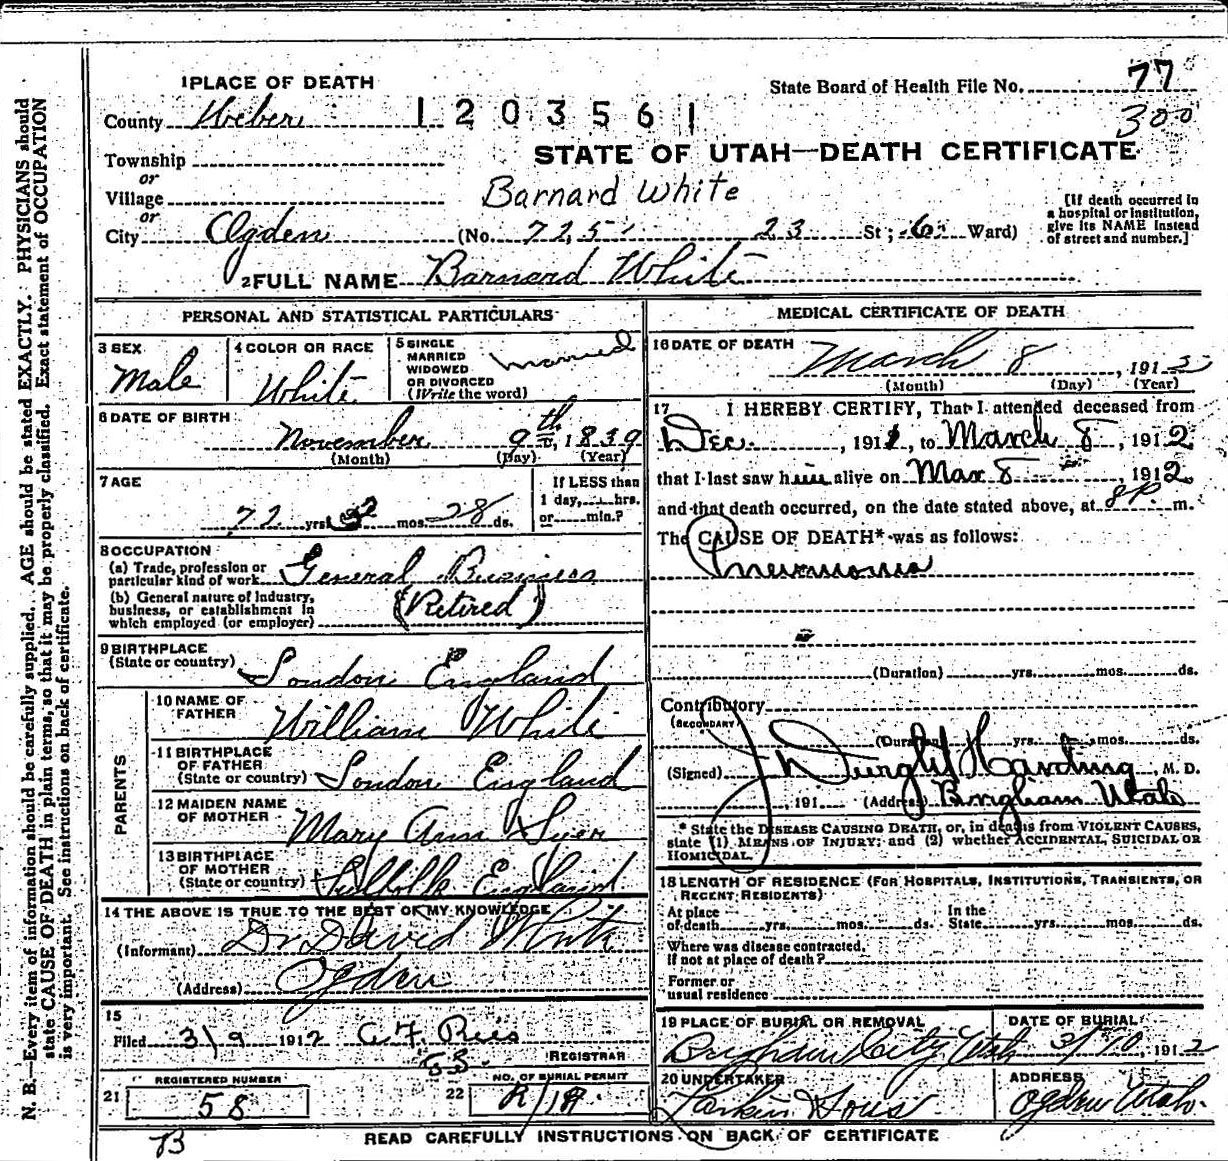 1 PLACE OF DEATH
State Board of Health File No. 77
County Weber
1203561
300
Township
STATE OF UTAH—DEATH CERTIFICATE
or
Village
Barnard White
or
City Ogden (No. 725 23 St; 6 Ward)
[If death occurred in
a hospital or institution,
give its NAME instead
of street and number.]
2 FULL NAME Barnard White
PERSONAL AND STATISTICAL PARTICULARS
3 SEX
Male
4 COLOR OR RACE
White
5 SINGLE
MARRIED
WIDOWED
OR DIVORCED
(Write the word)
Married
6 DATE OF BIRTH
November 9th, 1839
(Month) (Day) (Year)
7 AGE
72 yrs. mos. 28 ds.
If LESS than
1 day, hrs.
or min.?
8 OCCUPATION
(a) Trade, profession or
particular kind of work General Business
(b) General nature of industry,
business, or establishment in
which employed (or employer) (Retired)
9 BIRTHPLACE
(State or country) London England
PARENTS
10 NAME OF
FATHER William White
11 BIRTHPLACE
OF FATHER
(State or country) London England
12 MAIDEN NAME
OF MOTHER Mary Ann Syer
13 BIRTHPLACE
OF MOTHER
(State or country) Suffolk England
14 THE ABOVE IS TRUE TO THE BEST OF MY KNOWLEDGE
(Informant) Dr David White
(Address) Ogden
15
Filed 3/9 1912
REGISTRAR
REGISTERED NUMBER
21 58
NO. OF BURIAL PERMIT
22
MEDICAL CERTIFICATE OF DEATH
16 DATE OF DEATH
March 8, 1912
(Month) (Day) (Year)
17 I HEREBY CERTIFY, That I attended deceased from
Dec. , 1911, to March 8, 1912
that I last saw him alive on Mar 8, 1912
and that death occurred, on the date stated above, at 8 P m.
The CAUSE OF DEATH* was as follows:
Pneumonia
(Duration) yrs. mos. ds.
Contributory
(SECONDARY)
(Duration) yrs. mos. ds.
(Signed) Harding, M. D.
, 191 (Address) Bingham Utah
* State the DISEASE CAUSING DEATH, or, in deaths from VIOLENT CAUSES,
state (1) MEANS OF INJURY; and (2) whether ACCIDENTAL, SUICIDAL OR
HOMICIDAL.
18 LENGTH OF RESIDENCE (FOR HOSPITALS, INSTITUTIONS, TRANSIENTS, OR
RECENT RESIDENTS)
At place
of death yrs. mos. ds.
In the
State yrs. mos. ds.
Where was disease contracted,
if not at place of death?
Former or
usual residence
19 PLACE OF BURIAL OR REMOVAL
Brigham City Utah
DATE OF BURIAL
3/10, 1912
20 UNDERTAKER
Larkin Sons
ADDRESS
Ogden Utah.
READ CAREFULLY INSTRUCTIONS ON BACK OF CERTIFICATE
B
N. B.—Every item of information should be carefully supplied. AGE should be stated EXACTLY. PHYSICIANS should
state CAUSE OF DEATH in plain terms, so that it may be properly classified. Exact statement of OCCUPATION
is very important. See instructions on back of certificate.